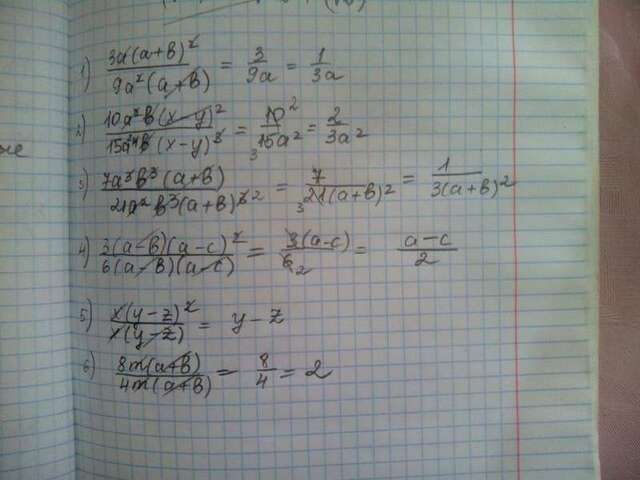 1) 3a(a+b)²/9a²(a+b) = 3/9a = 1/3a
2) 10a²b(x-y)²/15a⁴b(x-y)³ = 10 2/3 15a² = 2/3a²
3) 7a³b³(a+b)/21a²b³(a+b)³ ² = 7/3 21(a+b)² = 1/3(a+b)²
4) 3(a-b)(a-c)²/6(a-b)(a-c) = 3(a-c)/6 2 = a-c/2
5) x(y-z)²/x(y-z) = y-z
6) 8m(a+b)/4m(a+b) = 8/4 = 2